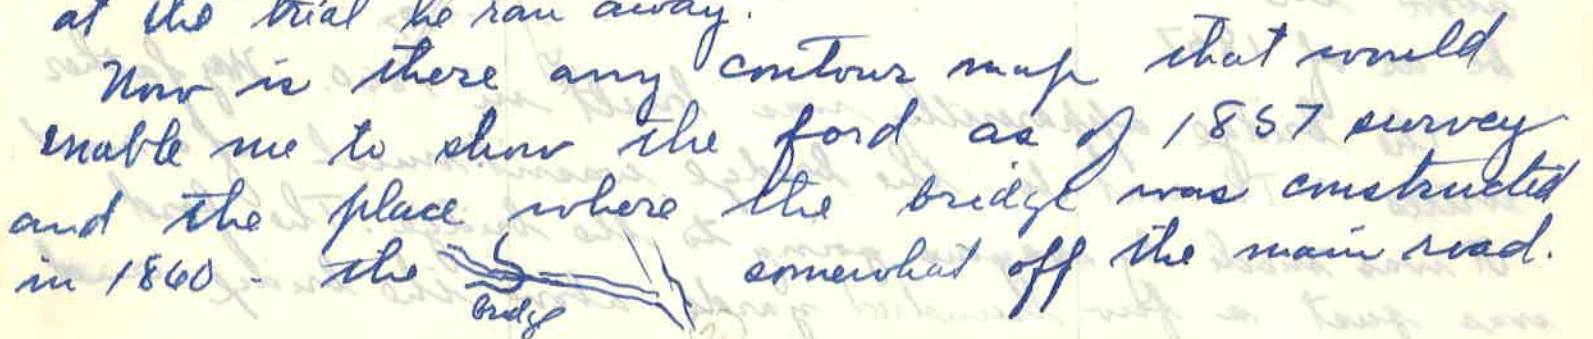 at the trial he ran away.
Now is there any contour map that would
enable me to show the ford as of 1857 survey
and the place where the bridge was constructed
in 1860 - the somewhat off the main road.
bridge